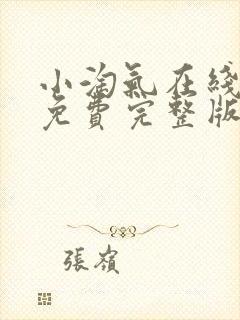 小淘氣在綫
免費完整版
張嶺